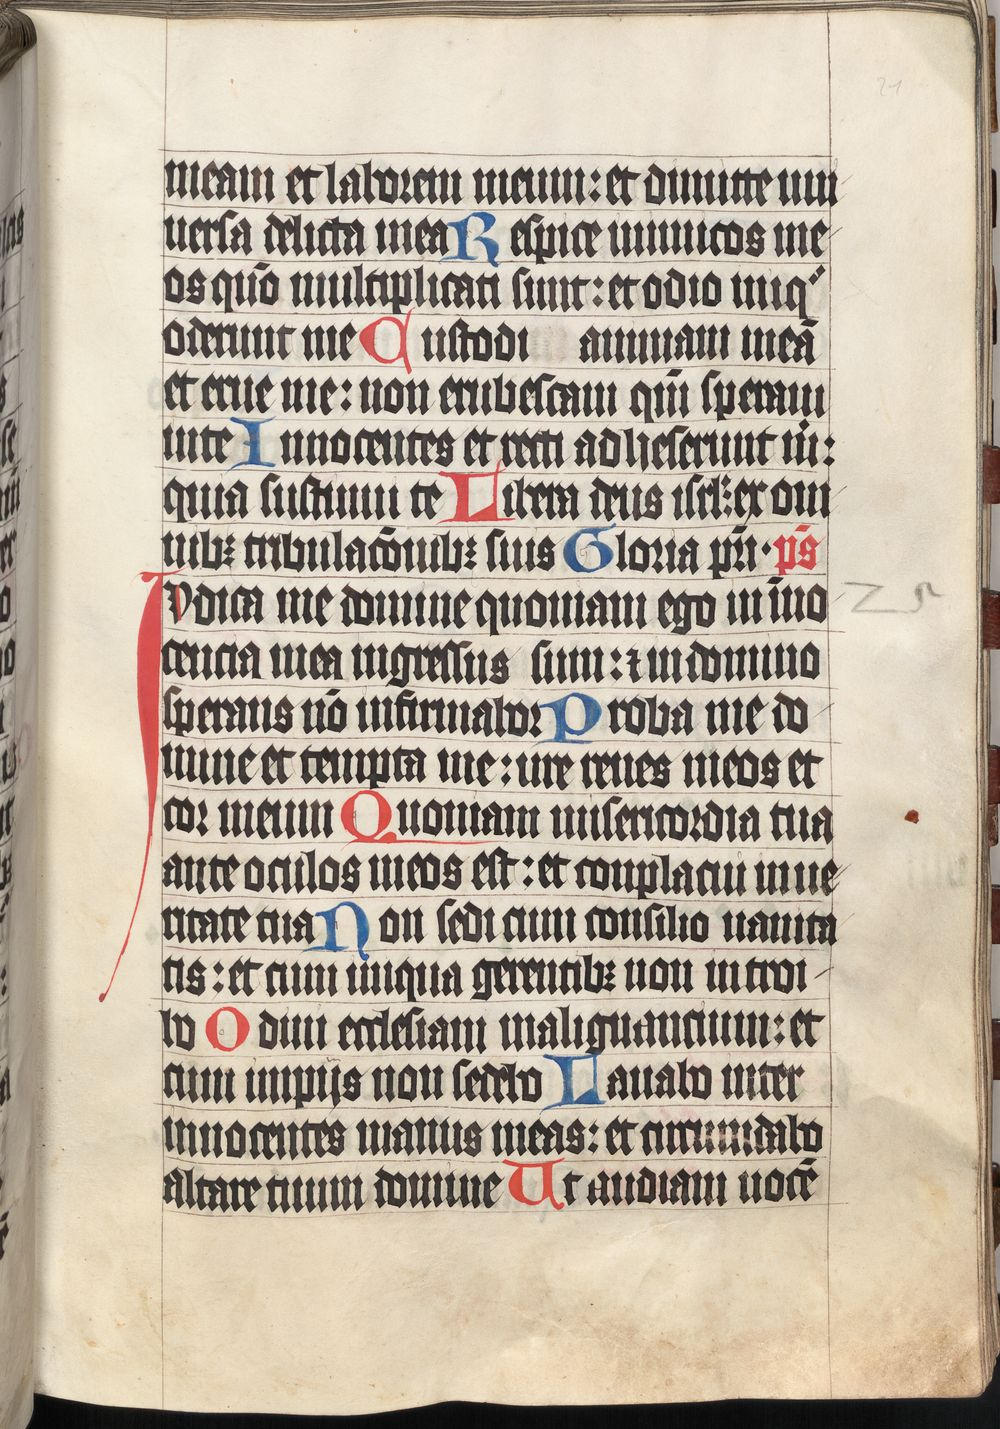 21
meam et laborem meum: et dimitte uni
uersa delicta mea Respice inimicos me
os quō multiplicati sunt: et odio iniq'
oderunt me Custodi animam meā
et erue me: non erubescam qm̄ speraui
in te Innocentes et recti adheserunt m̄:
quia sustinui te Libera deus isrl: ex om
nibꝫ tribulac̄onibꝫ suis Gloria pr̄i· ps̄
Iudica me domine quoniam ego in īno
cencia mea ingressus sum: ⁊ in domino
sperans nō infirmabor Proba me do
mine et tempta me: ure renes meos et
cor meum Quoniam misericordia tua
ante oculos meos est: et conplacui in ue
ritate tua Non sedi cum consilio uanita
tis: et cum iniqua gerentibꝫ non introi
bo Odiui ecclesiam malignancium: et
cum impijs non sedebo Lauabo inter
innocentes manus meas: et circumdabo
altare tuum domine Ut audiam uocē